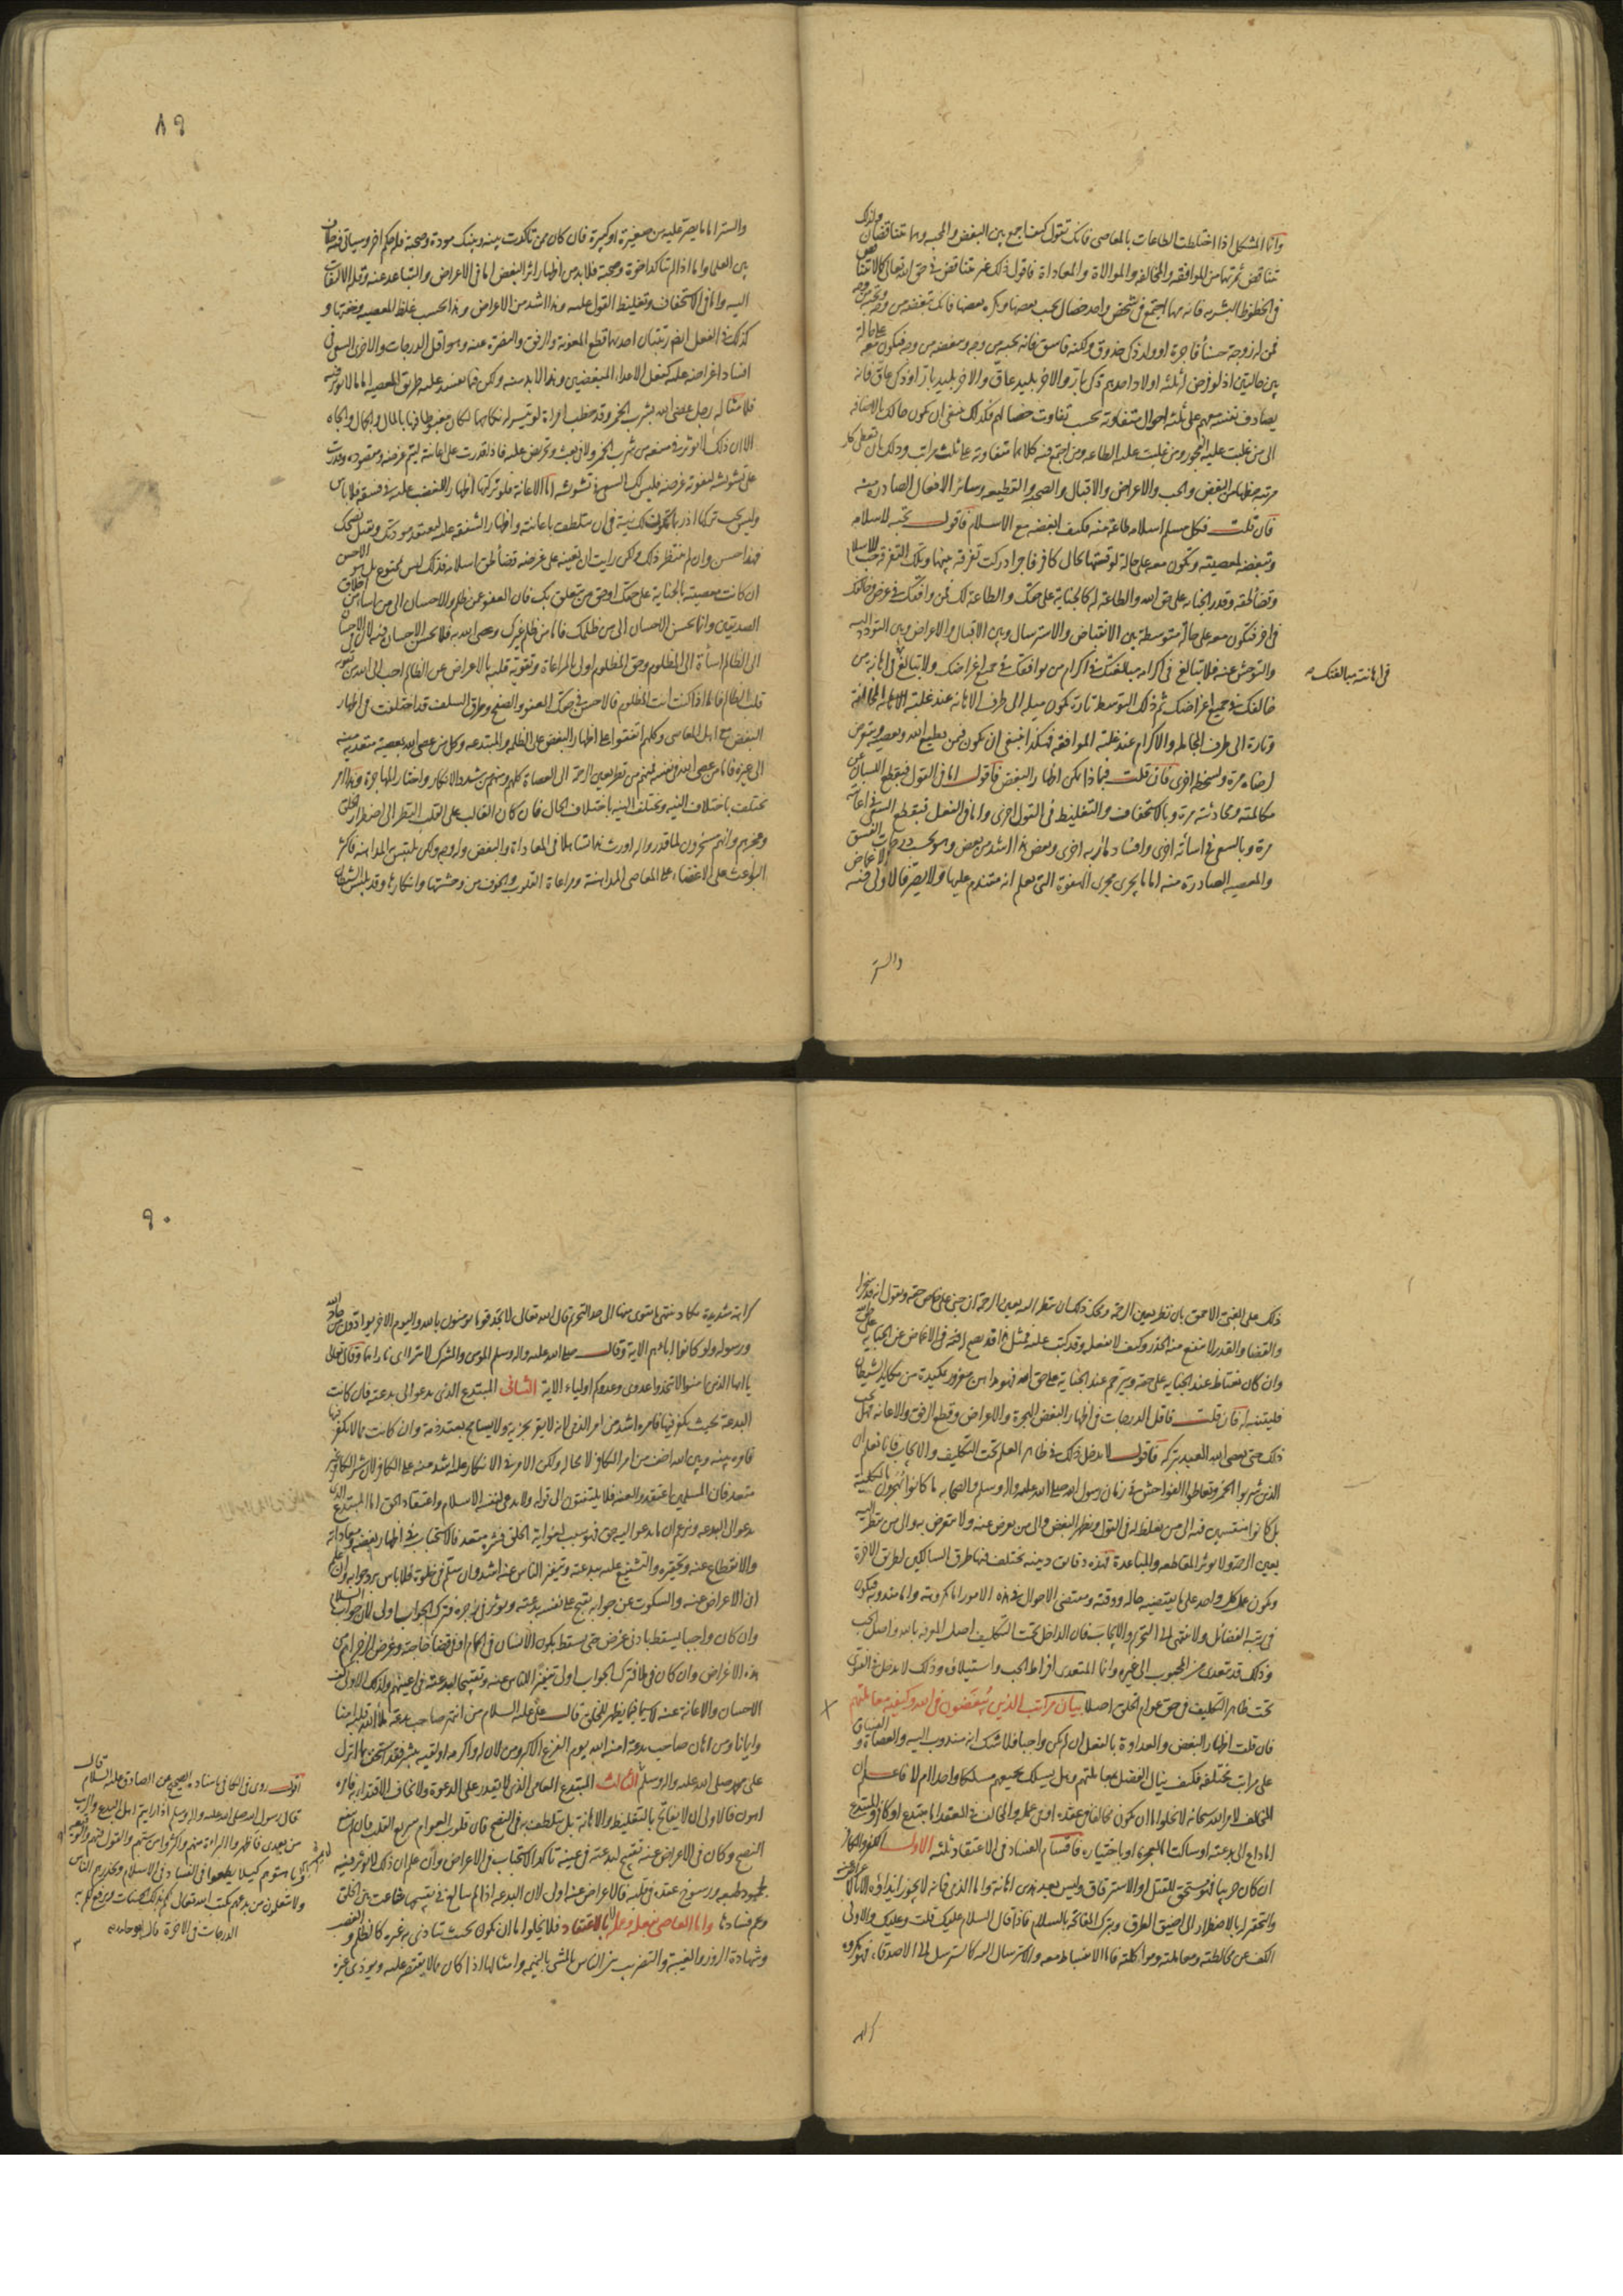 وأما المشكل اذا اختلطت الطاعات بالمعاصى فانك تقول كيف اجمع بين البغض والمحبه وهما متناقضان وكذلك
تتناقض ثمرتهما من الموافقه والمخالفه والموالاة والمعاداة فاقول ذلك غير متناقض فى حق الله تعالى كما لا تتناقض
فى الحظوظ البشريه فانه مهما اجتمع فى شخص واحد خصال يحب بعضها ويكره بعضها فانك تبغضه من وجه وتحبه من وجه
فمن له زوجة حسناء فاجرة او ولد ذكى خدوق ولكنه فاسق فانه يحبه من وجه ويبغضه من وجه فيكون معه على حالة
بين حالتين اذ لو فرض له ثلثه اولاد احدهم ذكى بار والاخر بليد عاق والاخر بليد بار او ذكى عاق فانه
يصادف نفسه معهم على ثلثه احوال متفاوته بحسب تفاوت خصالهم فكذلك ينبغى ان تكون حالك بالاضافه
الى من غلبت عليه الفجور ومن غلبت عليه الطاعه ومن اجتمع فيه كلاهما متفاوته على ثلث مراتب وذلك بان تعطى كل
مرتبه حظها من البغض والحب والاعراض والاقبال والصحبه والقطيعه وسائر الافعال الصادره منه
فان قلت فكل مسلم اسلامه طاعة منه فكيف ابغضه مع الاسلام فاقول تحبه لاسلامه
وتبغضه لمعصيته وتكون معه على حالة لو قستها بحال كافر فاجر ادركت تفرقه بينهما وتلك التفرقة حب للاسلام
وقضاء لحقه وقدر الجنايه على حق الله والطاعة له كالجناية على حقك والطاعة لك فمن وافقك فى غرض وخالفك
فى اخر فتكون معه على حالة متوسطة بين الانقباض والاسترسال وبين الاقبال والاعراض وبين التودد اليه
والتوحش عنه فلا تبالغ فى اكرامه مبالغتك فى اكرام من يوافقك فى جميع اغراضك ولا تبالغ فى اهانة من
فى اهانته مبالغتك
خالفك فى جميع اغراضك ثم ذلك التوسط تارة يكون ميله الى طرف الاهانه عند غلبة الجناية
وتارة الى طرف المجامله والاكرام عند غلبة الموافقه فهكذا ينبغى ان يكون فمن يطيع الله ويعصيه ويتعرض
لرضاه مرة ولسخطه اخرى فان قلت فبماذا يمكن اظهار البغض فاقول اما فى القول فبكف اللسان عن
مكالمته ومحادثته مرة وبالاستخفاف والتغليظ فى القول اخرى واما فى الفعل فبقطع السعى فى اعانته
مرة وبالسعى فى اساءته اخرى وافساد مآربه اخرى وبعض هذا اشد من بعض وهو بحسب درجات الفسق
والمعصيه الصادرة منه اما ما يجرى مجرى الهفوة التى يعلم انه متندم عليها ولا يصر فالاولى فيه الاغماض
والستر
٨٩
والستر اما ما يصر عليه من صغيرة او كبيرة فان كان ممن تاكدت بينه وبينك مودة وصحبة فله حكم اخر وسياتى فيه خلاف
بين العلما واما اذا لم تتاكد اخوة وصحبة فلابد من اظهار اثر البغض اما فى الاعراض والتباعد عنه وقلة الالتفات
اليه واما فى الاستخفاف وتغليظ القول عليه وهذا اشد من الاعراض وهذا بحسب غلظ المعصيه وخفتها و
كذلك فى الفعل ايضا رتبتان احديهما قطع المعونة والرفق والنصرة عنه وهو اقل الدرجات والاخرى السعى فى
افساد اغراضه عليه كفعل الاعداء المبغضين وهذا لا بد منه ولكن فيما يفسد عليه طريق المعصيه اما ما لا يؤثر فيه
فلا مثاله رجل عصى الله بشرب الخمر وقد خطب امراة لو تيسر له نكاحها لكان مغبوطا فيها بالمال والجمال والجاه
الا ان ذلك لا يؤثر فى منعه من شرب الخمر ولا فى بعث وتحريض عليه فاذا قدرت على اعانته ليتم غرضه ومقصوده وقدرت
على تشويشه ليفوته غرضه فليس لك السعى فى تشويشه اما الاعانة فلو تركتها اظهارا للغضب عليه فى فسقه فلا باس
وليس يجب تركها اذ ربما تكون لك نية فى ان تتلطف باعانته واظهار الشفقة عليه ليعتقد مودتك ويقبل نصحك
فهذا حسن وان لم تنتظر ذلك ولكن رايت ان تعينه على غرضه قضاء لحق اسلامه فذلك ليس بممنوع بل هو الاحسن
ان كانت معصيته بالجناية على حقك او حق من يتعلق بك فان العفو عن ظلم والاحسان الى من اساء من اخلاق
الصديقين وانما يحسن الاحسان الى من ظلمك فاما من ظلم غيرك وعصى الله به فلا يحسن الاحسان اليه لان الاحسان
الى الظالم اساءة الى المظلوم وحق المظلوم اولى بالمراعاة وتقوية قلبه بالاعراض عن الظالم احب الى الله من تقوية
قلب الظالم فاما اذا كنت انت المظلوم فالاحسن فى حقك العفو والصفح وطرق السلف قد اختلفت فى اظهار
البغض مع اهل المعاصى وكلهم اتفقوا على اظهار البغض على الظلمه والمبتدعه وكل من عصى الله بمعصية متعديه منه
الى غيره فاما من عصى الله فى نفسه فمنهم من نظر بعين الرحمة الى العصاة كلهم ومنهم من شدد الانكار واختار المهاجرة وهذا امر
تختلف باختلاف النيه وتختلف النيه باختلاف الحال فان كان الغالب على القلب النظر الى اضطرار الخلق
وعجزهم وانهم مسخرون لما قدر والله اورث هذا تساهلا فى المعاداة والبغض وله وجه ولكن يلتبس به المداهنه فاكثر
البواعث على الاغضاء على المعاصى المداهنة ومراعاة القلوب والخوف من وحشتها وانكارها وقد يلبس الشيطان
ذلك على الغبى الاحمق بان ينظر بعين الرحمة ومحك ذلك ان ينظر اليه بعين الرحمة ان جنى على خاص حقه ويقول انه قد سخر له
والقضا والقدر لا ينفع منه الحذر وكيف لا يفعل وقد كتب عليه فمثل هذا قد يصح له نيته فى الاغماض عن الجنايه على حق الله
وان كان يغتاظ عند الجنايه على حقه ويترحم عند الجنايه على حق الله فهو مداهن مغرور بمكيدة من مكايد الشيطان
فليتنبه له فان قلت فاقل الدرجات فى اظهار البغض الهجرة والاعراض وقطع الرفق والاعانه فهل يجب
ذلك حتى يعصى الله العبد بتركه فاقول لا يدخل ذلك فى ظاهر العلم تحت التكليف والايجاب فانا نعلم ان
الذين شربوا الخمر وتعاطوا الفواحش فى زمان رسول الله صلى الله عليه واله وسلم والصحابه ما كانوا يهجرون بالكلية
بل كانوا منقسمين فيه الى من يغلظ له فى القول ويظهر البغض والى من يعرض عنه ولا يتعرض به والى من ينظر اليه
بعين الرحمة ولا يوثر المقاطعه والمباعدة فهذه دقائق دينيه يختلف فيها طرق السالكين لطريق الاخرة
ويكون عمل كل واحد على ما يقتضيه حاله ووقته ومقتضى الاحوال فى هذه الامور اما مكروهة واما مندوبه فيكون
فى رتبه الفضائل ولا ينتهى الى التحريم والايجاب فان الداخل تحت التكليف اصل المعرفه بالله واصل الحب
وذلك قد يتعدى من المحبوب الى غيره وانما المتعدى افراط الحب واستيلاؤه وذلك لا يدخل فى الفتوى
تحت ظاهر التكليف فى حق عوام الخلق اصلا بيان مراتب الذين يبغضون فى الله وكيفيه معاملتهم
فان قلت اظهار البغض والعداوة بالفعل ان لم يكن واجبا فلا شك انه مندوب اليه والعصاة والفساق
على مراتب مختلفه فكيف ينال الفضل بمعاملتهم وهل يسلك بجميعهم مسلكا واحدا ام لا فاعلم ان
المخالف لامر الله سبحانه لا يخلوا اما ان يكون مخالفا فى عقده او فى عمله والمخالف فى العقد اما مبتدع او كافر والمبتدع
اما داع الى بدعته او ساكت اما لعجزه او باختياره فاقسام الفساد فى الاعتقاد ثلثه الاول الكفر والكافر
ان كان حربيا فهو مستحق للقتل او الاسترقاق وليس بعد هذين اهانة واما الذمى فانه لا يجوز ايذاؤه الا بالاعراض عنه
والتحقير له بالاضطرار الى اضيق الطرق وبترك المفاتحه بالسلام فاذا قال السلام عليك قلت وعليك والاولى
الكف عن مخالطته ومعاملته ومواكلته فاما الانبساط معه والاسترسال اليه كما يسترسل الى الاصدقاء فهو مكروه
كراهه
٩٠
كراهة شديدة يكاد ينتهى ما يقوى منها الى حد التحريم قال الله تعالى لا تجد قوما يومنون بالله واليوم الاخر يوادون من حاد الله
ورسوله ولو كانوا اباءهم الاية وقال صلى الله عليه واله وسلم المؤمن والمشرك لا تترااى نارا هما وقال تعالى
يا ايها الذين امنوا لا تتخذوا عدوى وعدوكم اولياء الاية الثانى المبتدع الذى يدعو الى بدعته فان كانت
البدعة بحيث يكفر بها فامره اشد من امر الذمى لانه لا يقر بجزيه ولا يسامح بعقد ذمه وان كانت مما لا يكفر بها
فامره بينه وبين الله اخف من امر الكافر لا محاله ولكن الامر فى الانكار عليه اشد منه على الكافر لان شر الكافر غير
متعد فان المسلمين اعتقدوا كفره فلا يلتفتون الى قوله ولا يدعى لنفسه الاسلام واعتقاد الحق اما المبتدع الذى
يدعو الى البدعه ويزعم ان ما يدعو اليه حق فهو سبب لغواية الخلق فشره متعد فالاستحباب فى اظهار بغضه ومعاداته
والانقطاع عنه وتحقيره والتشنيع عليه ببدعته وتنفير الناس عنه اشد وان سلم فى خلوة فلا باس برد جوابه وان علم
ان الاعراض عنه والسكوت عن جوابه يقبح على نفسه بدعته ويوثر فى زجره فترك الجواب اولى لان جواب السلام
وان كان واجبا يسقط بادنى غرض حتى يسقط بكون الانسان فى الحمام او فى قضاء حاجته وغرض الزجر اهم من
هذه الاغراض وان كان فى ملا فترك الجواب اولى تنفيرا للناس عنه وتقبيحا لبدعته فى اعينهم وكذلك الاولى كف
الاحسان والاعانة عنه لا سيما فيما يظهر للخلق قال عليه السلام من انتهر صاحب بدعة ملا الله قلبه امنا
وايمانا ومن اهان صاحب بدعة امنه الله يوم الفزع الاكبر ومن لان له او اكرمه او لقيه ببشر فقد استخف بما انزل
على محمد صلى الله عليه واله وسلم الثالث المبتدع العامى الذى لا يقدر على الدعوة ولا يخاف الاقتداء به فامره
اهون فالاولى ان لا يفاتح بالتغليظ والاهانة بل يتلطف به فى النصح فان قلوب العوام سريع التقلب فان لم ينفع
النصح وكان فى الاعراض عنه تقبيح لبدعته فى عينه تاكد الاستحباب فى الاعراض وان علم ان ذلك لا يؤثر فيه
لجمود طبعه ورسوخ عقده فى قلبه فالاعراض عنه اولى لان البدعه اذا لم يبالغ فى تقبيحها شاعت بين الخلق
وعم فسادها واما العاصى بفعله وعمله لا بالاعتقاد فلا يخلوا اما ان يكون بحيث يتاذى به غيره كالظلم والغصب
وشهادة الزور والغيبة والتضريب بين الناس بالمشى بالنميمه وامثالها اذا كان مما لا يقتصر عليه ويوذى غيره
اقول روى فى الكافى باسناده الصحيح عن الصادق عليه السلام قال
قال رسول الله صلى الله عليه واله وسلم اذا رايتم اهل البدع والريب
من بعدى فاظهروا البراءة منهم واكثروا من سبهم والقول فيهم والوقيعه
وباهتوهم كيلا يطمعوا فى الفساد فى الاسلام ويحذرهم الناس
ولا يتعلمون من بدعهم يكتب الله تعالى لكم بذلك الحسنات ويرفع لكم به
الدرجات فى الاخرة قال ابو حامد